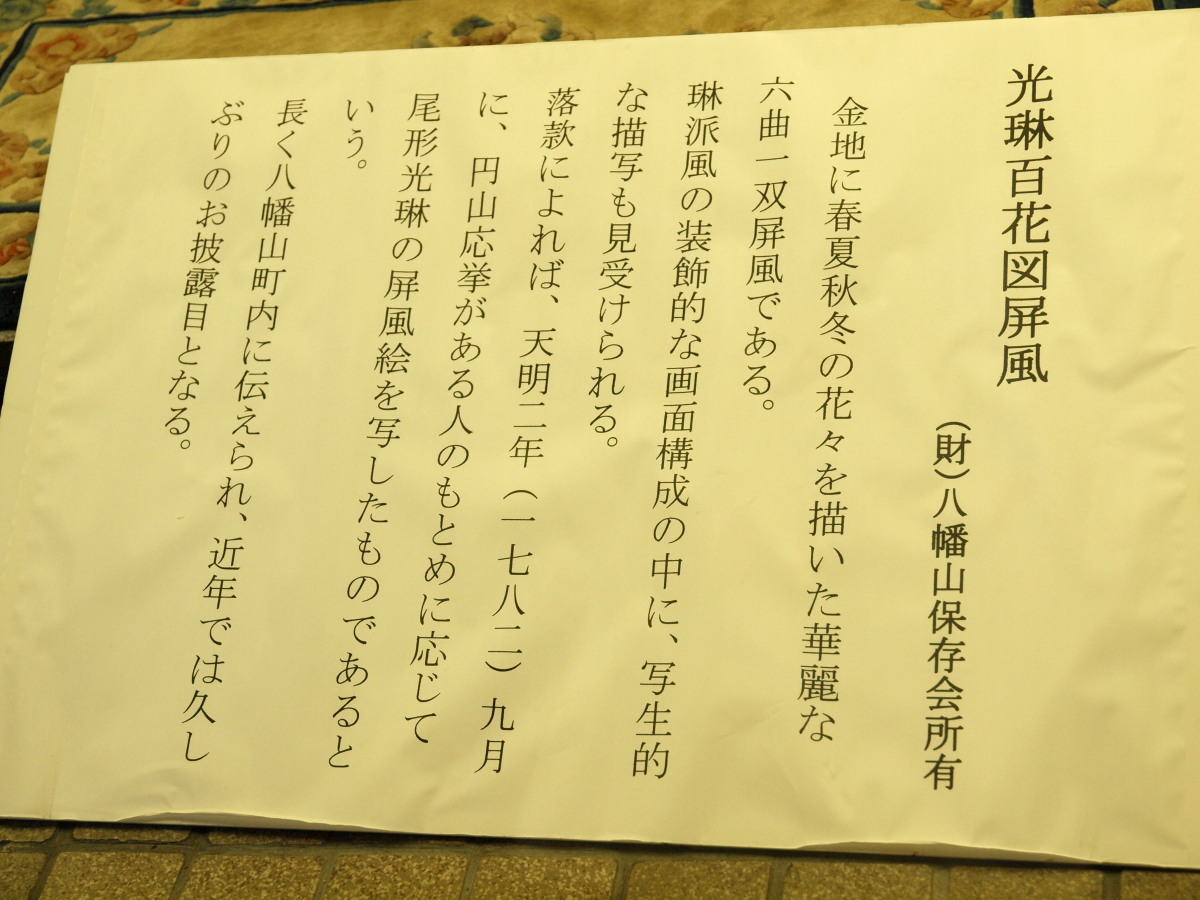 光琳百花図屏風
（財）八幡山保存会所有
金地に春夏秋冬の花々を描いた華麗な
六曲一双屏風である。
琳派風の装飾的な画面構成の中に、写生的
な描写も見受けられる。
落款によれば、天明二年（一七八二）九月
に、円山応挙がある人のもとめに応じて
尾形光琳の屏風絵を写したものであると
いう。
長く八幡山町内に伝えられ、近年では久し
ぶりのお披露目となる。